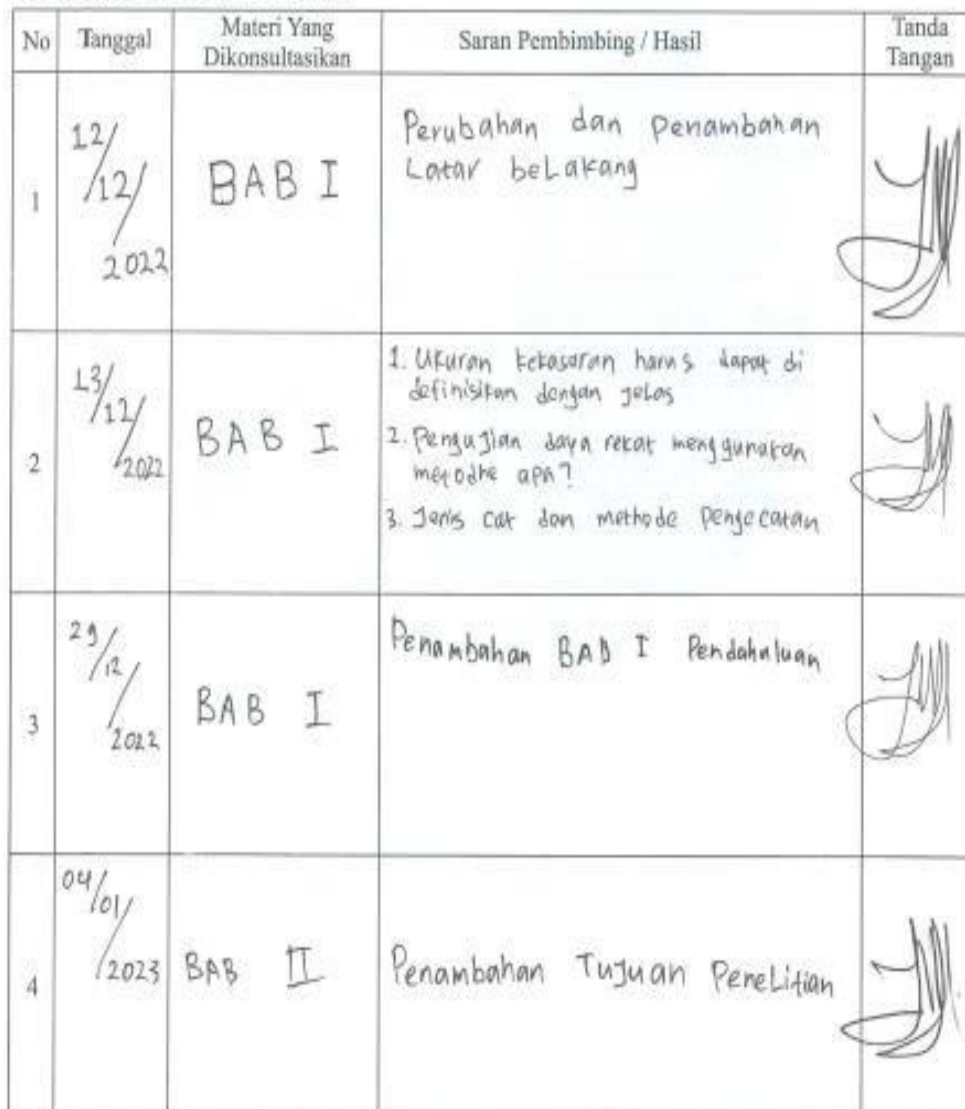 No Tanggal Materi Yang Dikonsultasikan Saran Pembimbing / Hasil Tanda Tangan
1 12/12/2022 BAB I Perubahan dan penambahan
Latar beLakang
2 13/12/2022 BAB I 1. Ukuran kekasaran harus dapat di
definisikan dengan jeLas
2. Pengujian daya rekat menggunakan
metodhe apa?
3. Jenis cat dan methode pengecatan
3 29/12/2022 BAB I Penambahan BAB I Pendahuluan
4 04/01/2023 BAB II Penambahan Tujuan PeneLitian